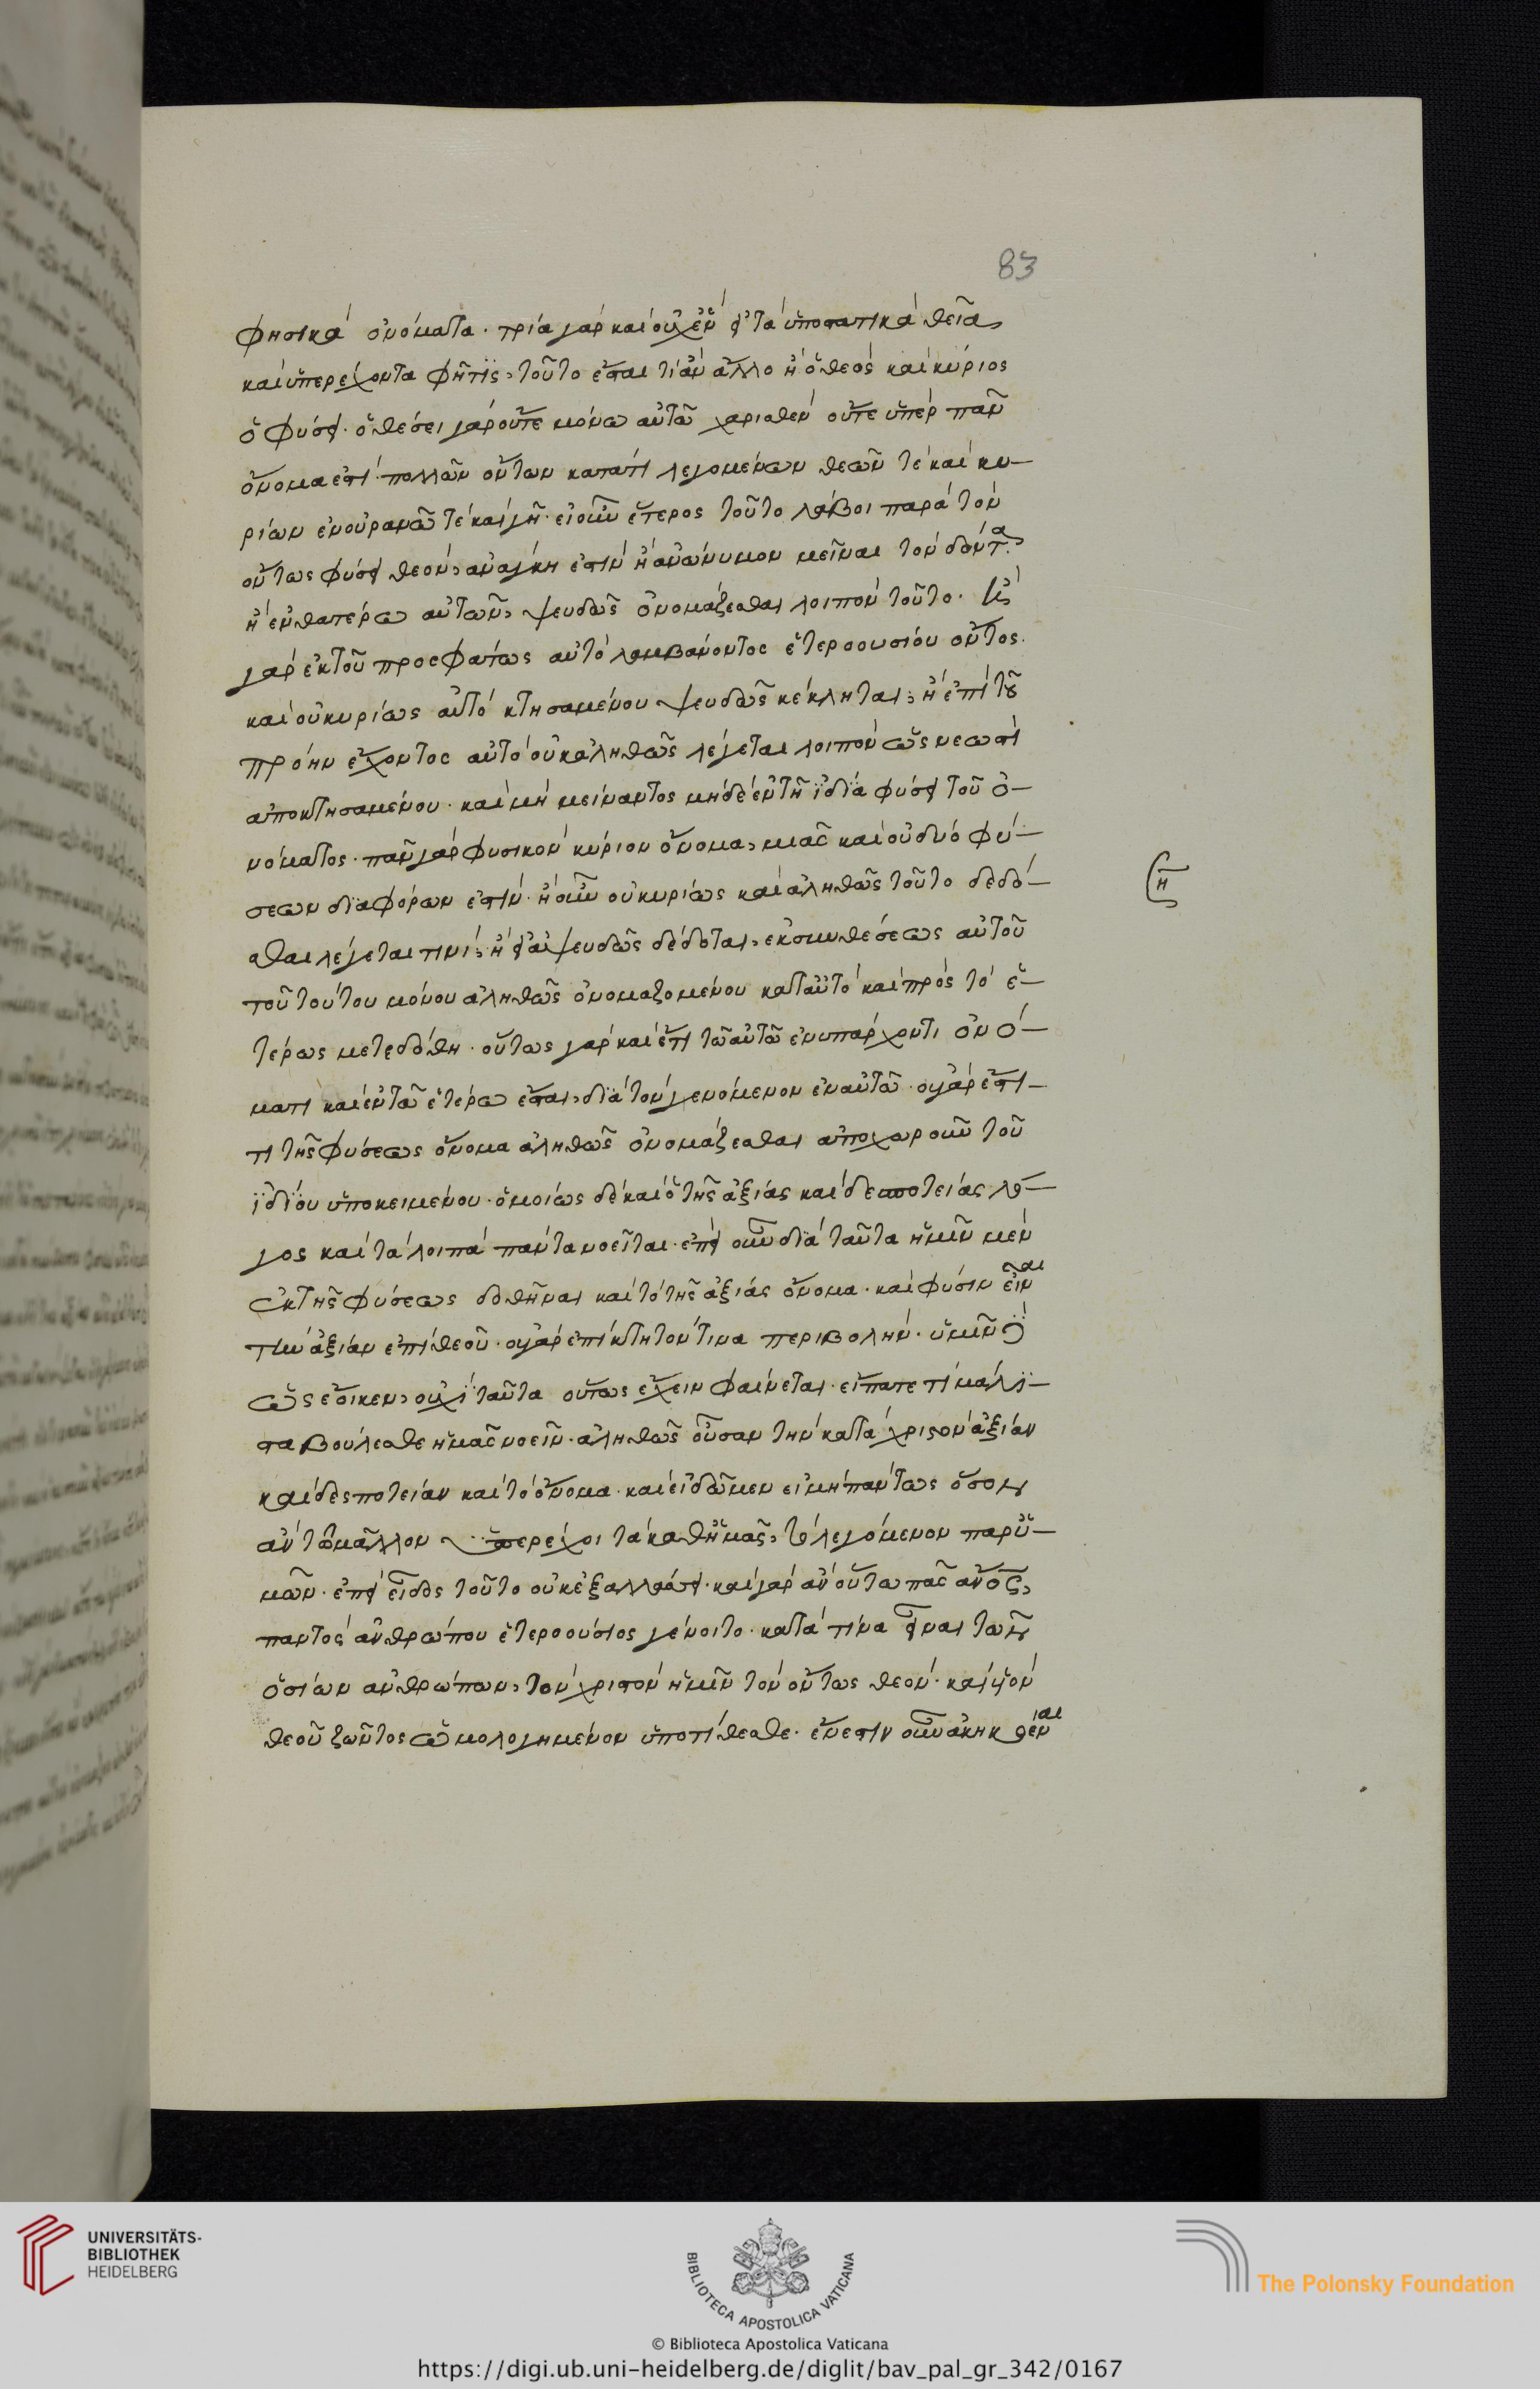 83
φησικὰ ὀνόματα. τρία γὰρ καὶ οὐχ ἓν εἰ τὰ ὑποστατικὰ θεῖα,
καὶ ὑπερέχοντα φῆ τις, τοῦτο ἔσται τί ἂν ἄλλο ἢ ὁ θεὸς καὶ κύριος
ὁ φύσει. ὁ θέσει γὰρ οὔτε μόνω αὐτῶ χαρισθὲν οὔτε ὑπὲρ πᾶν
ὄνομα ἐστὶ πολλῶν ὄντων λεγομένων θεῶν τὲ καὶ κυ-
ρίων ἐν οὐρανῶ τὲ καὶ γῆ. εἰ οὖν ἕτερος τοῦτο λάβοι παρὰ τὸν
ὄντως φύσει θεὸν, ἀνάγκη ἐστὶν ἢ ἀνώνυμον μεῖναι τὸν δόντα,
ἢ ἐν θατέρω αὐτῶν, ψευδῶς ὀνομάζεσθαι λοιπὸν τοῦτο. ἢ
γὰρ ἐκ τοῦ προσφάτως αὐτὸ λαμβάνοντος ἑτεροουσίου ὄντος.
καὶ οὐ κυρίως αὐτὸ κτησαμένου ψευδῶς κέκληται, ἢ ἐπὶ τοῦ
πρόην ἔχοντος αὐτὸ οὐκ ἀληθῶς λέγεται λοιπὸν ὡς νεωστὶ
ἀποκτησαμένου. καὶ μὴ μείναντος μηδὲ ἐν τῆ ἰδία φύσει τοῦ ὀ-
νόματος. πᾶν γὰρ φυσικὸν κύριον ὄνομα, μιᾶς καὶ οὐ δυό φύ-
σεων διαφόρων ἐστίν. ἢ οὖν οὐ κυρίως καὶ ἀληθῶς τοῦτο δεδό-
σθαι λέγεται τινὶ, ἢ εἰ ἀψευδῶς δέδοται, ἐκ συνθέσεως αὐτοῦ
τοῦ τούτου μόνου ἀληθῶς ὀνομαζομένου καταὐτὸ καὶ πρὸς τὸ ἑ-
τέρως μετεδόθη. οὕτως γὰρ καὶ ἐπὶ τῶ αὐτῶ ἐνυπάρχοντι ὀνό-
ματι καὶ ἐν τῶ ἑτέρω ἔσται, διὰ τὸν γενόμενον ἐν αὐτῶ. οὐ γὰρ ἔστι
τι τῆς φύσεως ὄνομα ἀληθῶς ὀνομάζεσθαι ἀποχωροῦν τοῦ
ἰδίου ὑποκειμένου. ὁμοίως δὲ καὶ ὁ τῆς ἀξίας καὶ δεσποτείας λό-
γος καὶ τὰ λοιπὰ πάντα νοεῖται. ἐπεὶ οὖν διὰ ταῦτα ἡμῖν μὲν
ἐκ τῆς φύσεως δοθῆναι καὶ τὸ τῆς ἀξίας ὄνομα. καὶ φύσιν εἶναι
τὴν ἀξίαν ἐπὶ θεοῦ. οὐ γὰρ ἐπίκτητον τινα περιβολὴν. ὑμῖν δὲ
ὡς ἔοικεν, οὐχὶ ταῦτα οὕτως ἔχειν φαίνεται. εἴπατε τί μάλι-
στα βούλεσθε ἡμᾶς νοεῖν. ἀληθῶς οὖσαν τὴν κατὰ χριστὸν ἀξίαν
καὶ δεσποτείαν καὶ τὸ ὄνομα. καὶ εἰδῶμεν εἰ μὴ πάντως ὅσον
ἂν τὸ μᾶλλον ὑπερέχοι τὰ καθ ἡμᾶς, τὸ λεγόμενον παρ ὑ-
μῶν. ἐπεὶ εἶδος τοῦτο οὐκ ἐξαλλάσσει. καὶ γὰρ ἂν οὕτω πᾶς ἄνος,
παντὸς ἀνθρώπου ἑτεροούσιος γένοιτο. κατά τινα εἶναι τῶν
ὁσίων ἀνθρώπων, τὸν χριστὸν ἡμῖν τὸν ὄντως θεὸν. καὶ υἱὸν
θεοῦ ζῶντος ὡμολογημένον ὑποτίθεσθε. ἔνεστιν οὖν ἀκηκοέναι
η
UNIVERSITÄTS-
BIBLIOTHEK
HEIDELBERG
BIBLIOTECA APOSTOLICA VATICANA
The Polonsky Foundation
© Biblioteca Apostolica Vaticana
https://digi.ub.uni-heidelberg.de/diglit/bav_pal_gr_342/0167